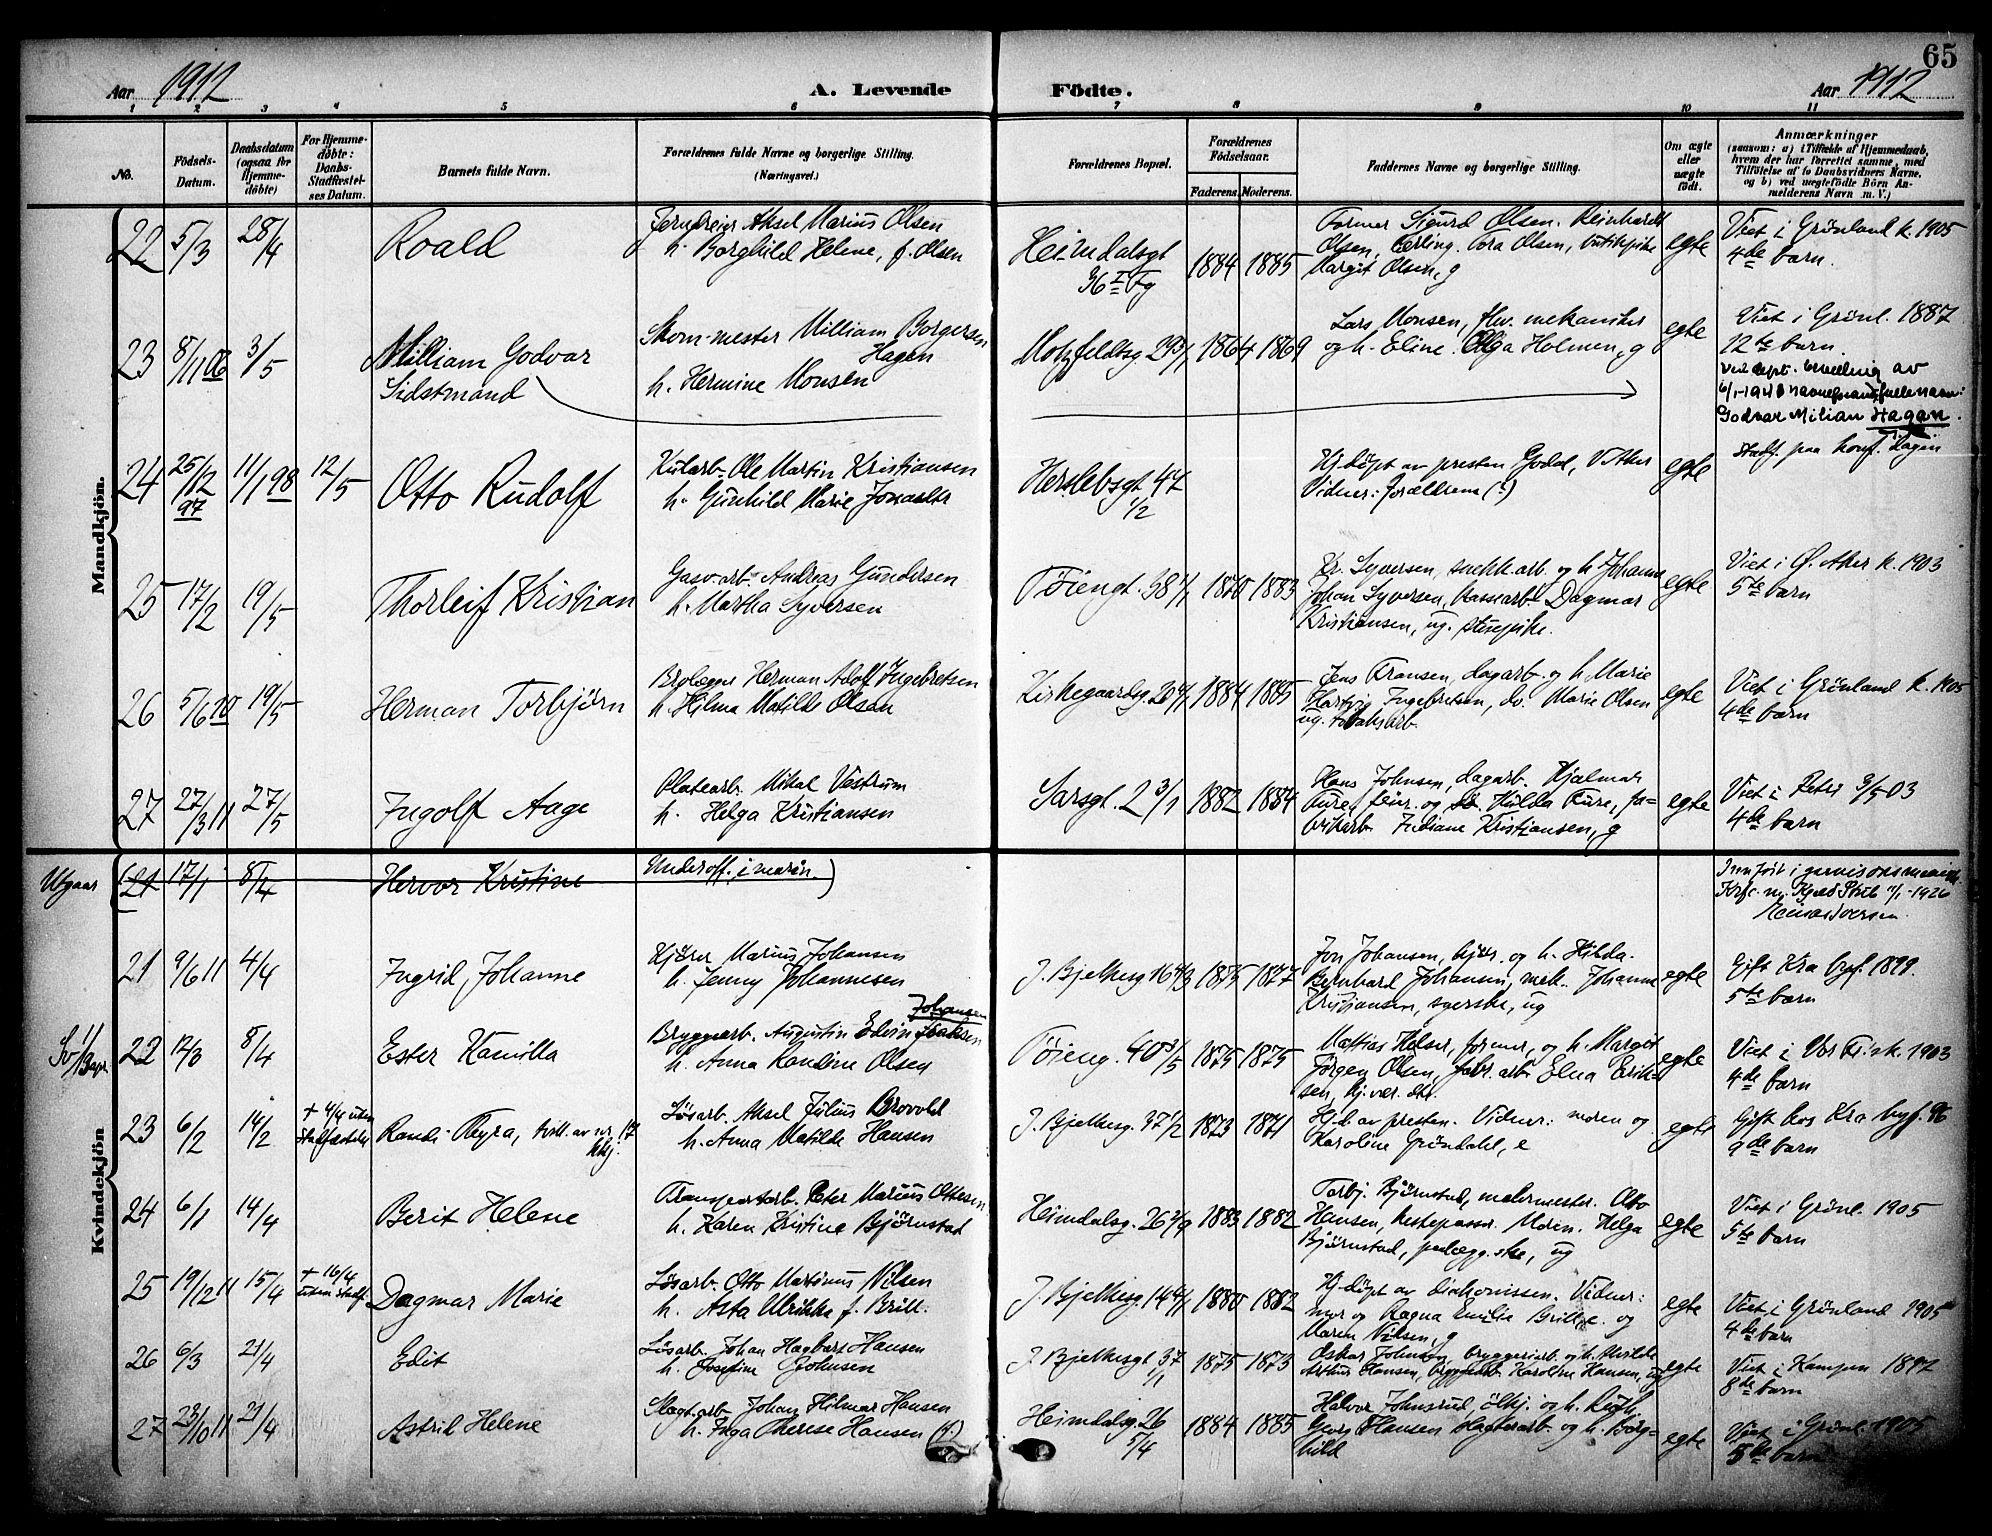 65
Aar 1912
A. Levende
Födte.
Aar 1912
1 2 3 4 5 6 7 8 9 10 11
No.
Födsels-Datum.
Daabsdatum (ogsaa for Hjemme-døbte)
For Hjemme-døbte: Daabs-Stadfæstel-ses Datum.
Barnets fulde Navn.
Forældrenes fulde Navne og borgerlige Stilling. (Næringsvei.)
Forældrenes Bopæl.
Forældrenes Födselsaar.
Faderens. Moderens.
Faddernes Navne og borgerlige Stilling.
Om ægte eller uægte födt.
Anmærkninger
(saasom: a) i Tilfælde af Hjemmedaab,
hvem der har forrettet samme, med
Tilföielse af to Daabsvidners Navne,
og b) ved uægtefödte Börn An-
melderens Navn m. V.)
Mandkjön.
22 5/3 28/4 Roald
Jerndreier Aksel Marius Olsen
h. Borghild Helene, f. Olsen
Heimdalsgt 36 I Fg 1884 1885
Former Sigurd Olsen. Reinhardt
Olsen, Erling. Tora Olsen, butikpike
Margit Olsen, g
egte
Viet i Grønland k. 1905
4de barn.
23 8/11 06 3/5 William Godvar
Sidstmand
Skom-mester William Borgersen
Hagen
h. Hermine Monsen
Motzfeldtsg. 1864 1869
Lars Monsen, mekaniker
og h. Eline. Olga Holmen, g
egte
Viet i Grønl. 1887
12te barn.
ved dept. bevilling av
Godvar Milian Hagan.
Stadf. paa konf. dagen
24 25/12 97 11/1 98 12/5 Otto Rudolf
Kularb. Ole Martin Kristiansen
h. Gunhild Marie
Herslebsgt 47 1/2
Hj.døpt av presten Godal, V. Aker
Vidner: forældrene (?)
egte
25 17/2 19/5 Thorleif Kristian
Gasv.arb. Andreas Gundersen
h. Martha Syversen
Tøiengt. 38 1870 1883
Kr. Syversen, snekk.arb og h. Johanne
Johan Syversen, Dagmar
Kristiansen, ug. stuepike.
egte
Viet i Ø. Aker k. 1903
5te barn
26 5/6 10 19/5 Herman Torbjørn
Brolægger Herman Adolf Ingebretsen
h. Hilma Matilde Olsen
Kirkegaardsg. 20 1884 1885
Jens Fransen, dagarb. og h. Marie
Hartvig Ingebretsen, do. Marie Olsen
ug. tobaksarb.
egte
Viet i Grønland k. 1905
4de barn
27 27/3 11 27/5 Ingolf Aage
Platearb. Mikal Vestrum
h. Helga Kristiansen
Sarsgt. 2 3/1 1882 1884
Hans Johnsen, dagarb. Hjalmar
Ture, feier. og Hulda Ture, fa-
brikarb Indiane Kristiansen, g
egte
Viet i Petri 3/5 03
4de barn
Kvindekjön
Utgaar (21 17/1 8/4 Hervor Kristine
Underoff. i marin.)
Innført i garnisonsmenigh.
21 9/6 11 4/4 Ingrid Johanne
Kjører Marius Johansen
h. Jenny Johannesen
J. Bjelkesg. 16 4/3 1875 1877
Jon Johansen, kjør. og h. Hilda.
Bernhard Johansen, mek. Johanne
Kristiansen, syerske, ug
egte
Gift Kra byf. 1899.
5te barn
22 12/3 8/4 Ester Kamilla
Johansen
Bryggearb. Augustin Edvin
h. Anna Kandine Olsen
Tøieng. 40 3/5 1875 1875
Mattias Helser, former, og h. Margit
Jørgen Olsen, fabr. arb Elna Erik-
sen,
egte
Viet i Vor Fr. k. 1903
4de barn
23 6/2 14/2 + 4/4 uten stadfæstelse Randi Theyra, tvill. av nr. 17
Løsarb. Aksel Julius Brovold
h. Anna Matilde Hansen
J. Bjelkesg. 37 1/2 1873 1871
Hj.d av presten. Vidner: moren og
Karoline Grøndahl, e
egte
Gift hos Kra byf. 96
9de barn
24 6/1 14/4 Berit Helene
Transportarb. Peter Marius Ottesen
h. Karen Kristine Bjørnstad
Heimdalsg. 26 2/9 1883 1882
Torbj. Bjørnstad, malermester. Otto
Hansen, hestepasser. Moren. Helga
Bjørnstad, ug
egte
Viet i Grønl. 1905
5te barn
25 19/12 11 15/4 + 16/4 uten stadf. Dagmar Marie
Løsarb. Otto Martinus Nilsen
h. Asta Ulrikke f. Brill.
J. Bjelkesg. 14 4/1 1880 1882
Hj.døpt av diakonissen. Vidner:
mor og Ragna Emilie Brill, e. og
Maren Nilsen, g
egte
Viet i Grønland 1905
4de barn
26 6/3 21/4 Edit
Løsarb. Johan Hagbart Hansen
h. Josefine Johnsen
J. Bjelkesgt 37/1 1875 1873
Oskar Johnsen, bryggeriarb. og h. Alvilde
Arthur Hansen, Karoline Hansen, ug
egte
Viet i Kampen 1897
8de barn
27 23/10 11 21/4 Astrid Helene
Slagt.arb Johan Hilmar Hansen
h. Inga Therese Hansen
Heimdalsg 26 5/4 1884 1885
Halvor Johnsrud, ølkj. og h. Ruth,
Georg Hansen slagterarb. og h. Borg-
hild
egte
Viet i Grønl. 1905
5te barn